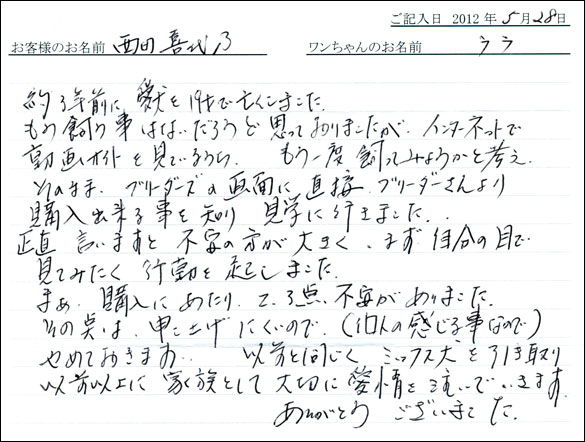 ご記入日 2012年5月28日
お客様のお名前 西田喜代乃 ワンちゃんのお名前 ララ
約3年前に、愛犬を19才で亡くしました。
もう飼う事はないだろうと思っておりましたが、インターネットで
動画サイトを見ているうち、もう一度飼ってみようかと考え、
そのまま、ブリーダーズの画面に直接、ブリーダーさんより
購入出来る事を知り 見学に行きました。
正直言いますと不安の方が大きく、まず自分の目で
見てみたく行動を起しました。
まあ、購入にあたり、2、3点、不安がありました。
その点は、申し上げにくいので、(個人の感じる事なので)
やめておきます。 以前と同じくミックス犬を引き取り
以前以上に家族として大切に愛情を注いでいきます。
ありがとうございました。